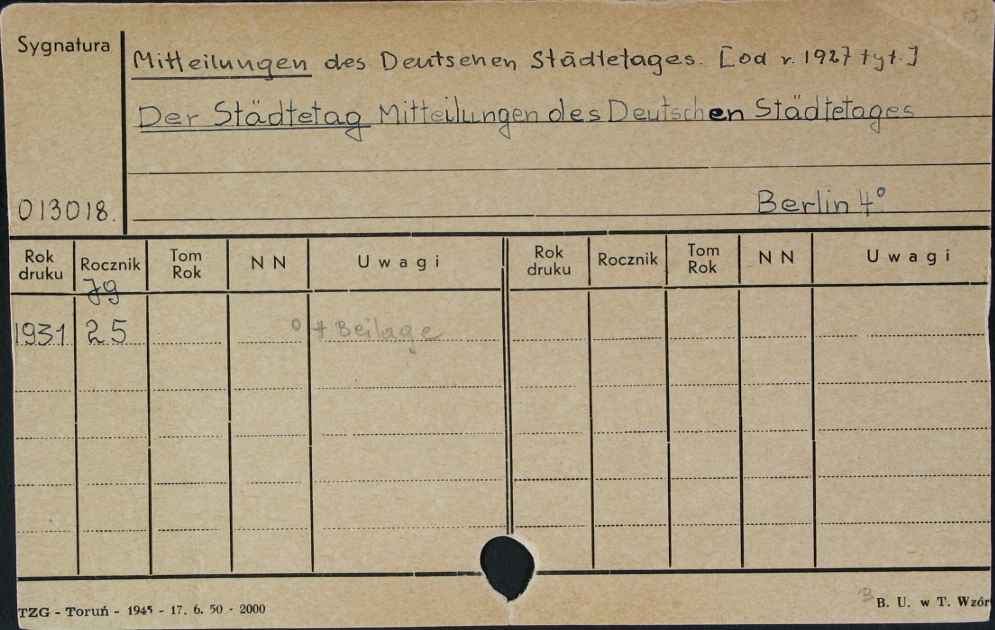 Sygnatura
Mitteilungen des Deutschen Städtetages. [od r. 1927 tyt.]
Der Städtetag Mitteilungen des Deutschen Städtetages
013018.
Berlin 4°
Rok druku Rocznik Tom Rok N N U w a g i Rok druku Rocznik Tom Rok N N U w a g i
Jg
1931 25 ° + Beilage
TZG - Toruń - 1945 - 17. 6. 50 - 2000
B. U. w T. Wzór